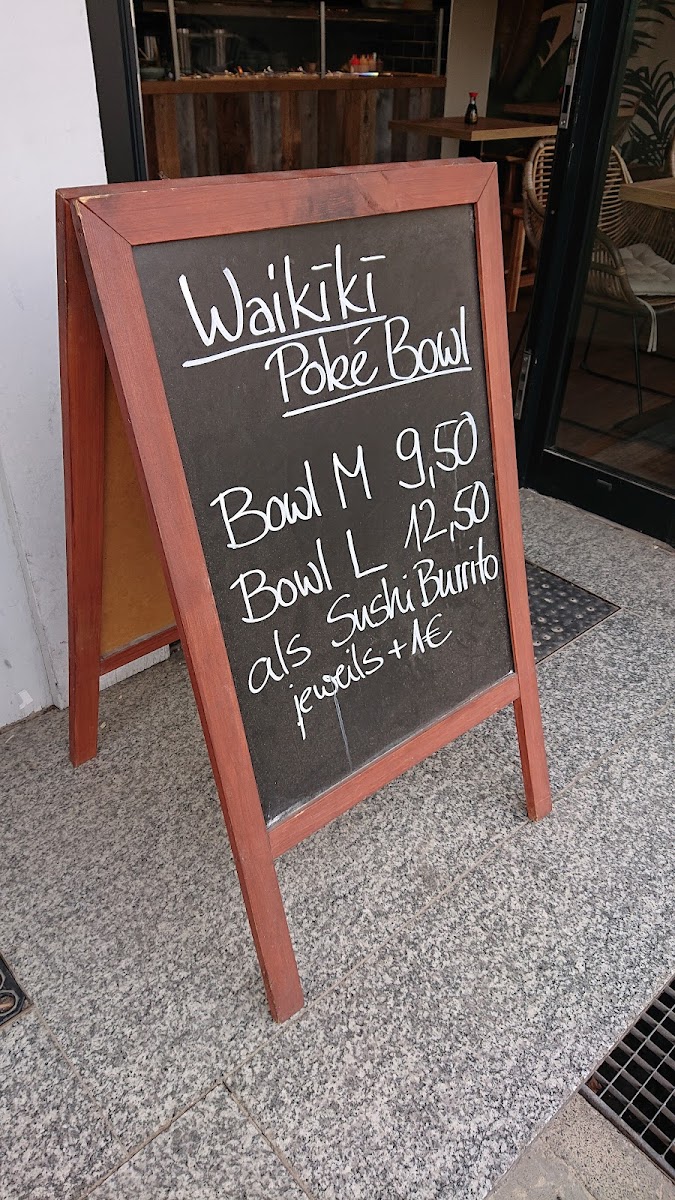 Waikīkī
Poké Bowl
Bowl M 9,50
Bowl L 12,50
als Sushi Burrito
jeweils + 1€